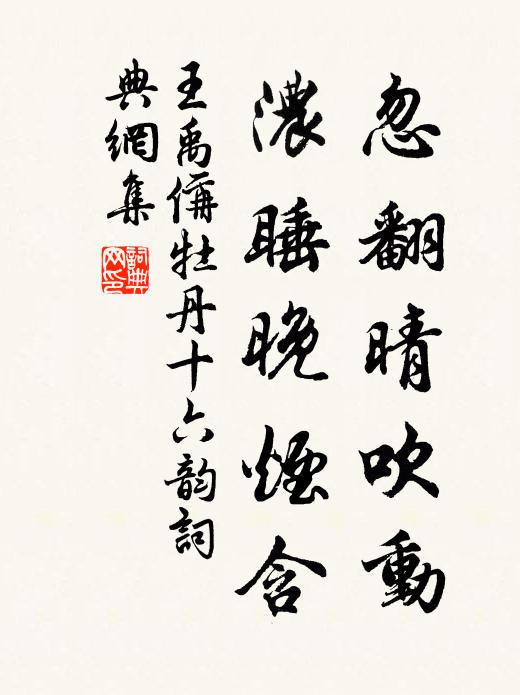 忽翻晴吹動
濃睡晚煙含
王禹偁牡丹十六韵詞
典網集
詞典
网印